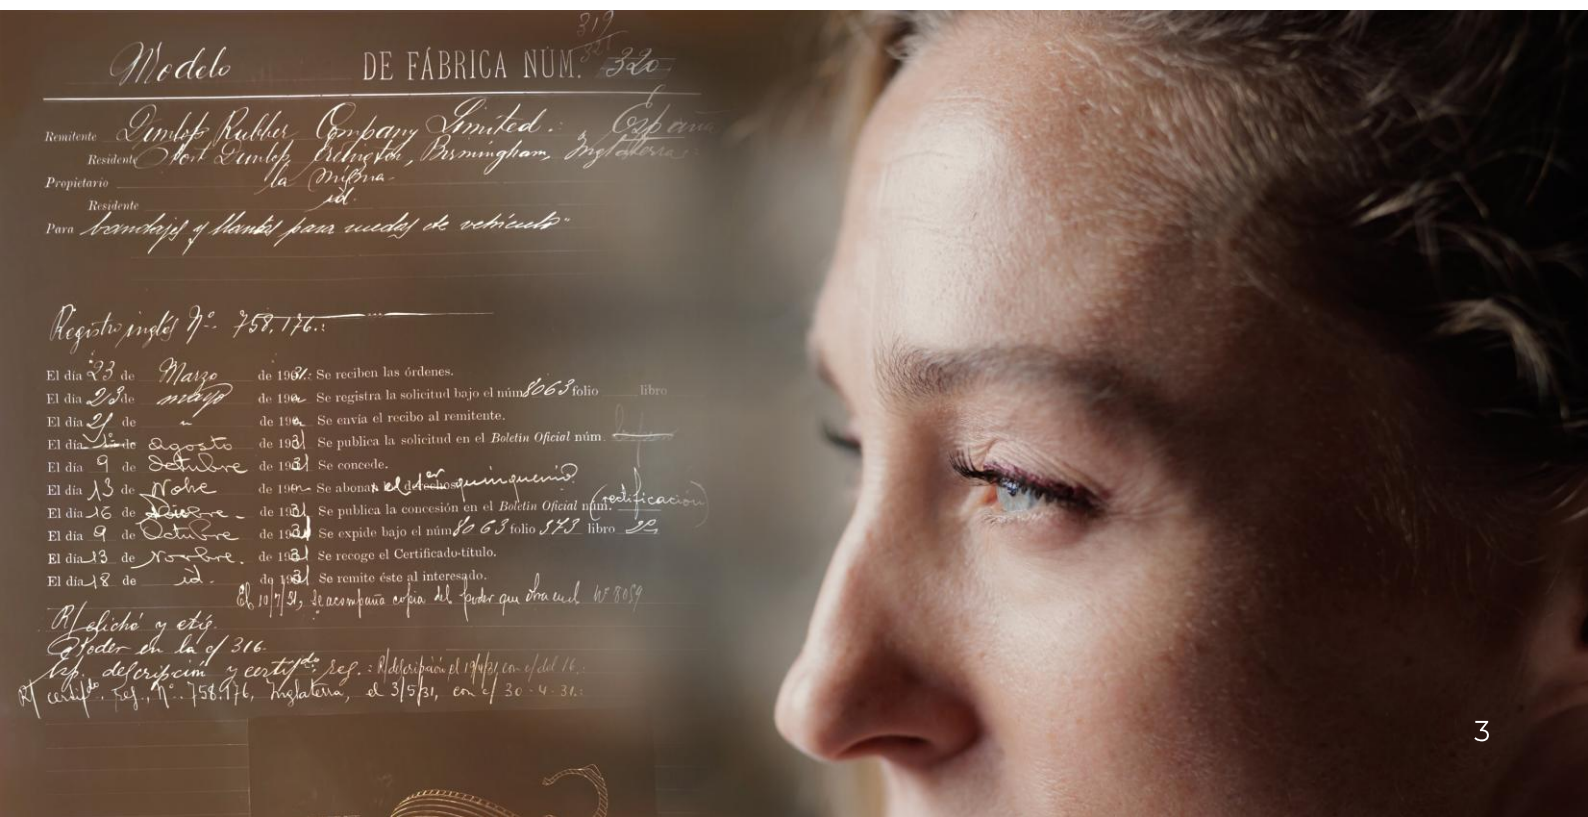 319
321
Modelo DE FÁBRICA NÚM. 320
Remitente Dunlop Rubber Company Limited.: España
Residente Fort Dunlop, Erdington, Birmingham, Inglaterra
Propietario la misma
Residente id.
Para bandajes y llantas para ruedas de vehículo
Registro inglés Nº. 758.176.:
El día 23 de Marzo de 1931.: Se reciben las órdenes.
El día 23 de mayo de 190 Se registra la solicitud bajo el núm 8063 folio libro
El día de " de 190 Se envía el recibo al remitente.
El día 1º de agosto de 1931 Se publica la solicitud en el Boletín Oficial núm.
El día 9 de Octubre de 1931 Se concede.
El día 13 de Nobe de 190 Se abona el 1er quinquenio
El día 16 de Dicbre de 1931 Se publica la concesión en el Boletín Oficial núm. (rectificación)
El día 9 de Octubre de 1931 Se expide bajo el núm 8063 folio 373 libro
El día 13 de Novbre. de 1931 Se recoge el Certificado-título.
El día 18 de id. de 1931 Se remite éste al interesado.
El 10/7/31, se acompaña copia del poder que obra en el Nº 8059
R/ cliché y etiq.
Poder en la c/ 316.
Esp. descripción y certifdo. reg.: R/ descripción el 19/4/31, con c/ del 16.
R/ certifdo. reg., Nº. 758.176, Inglaterra, el 3/5/31, con c/ 30-4-31.:
3